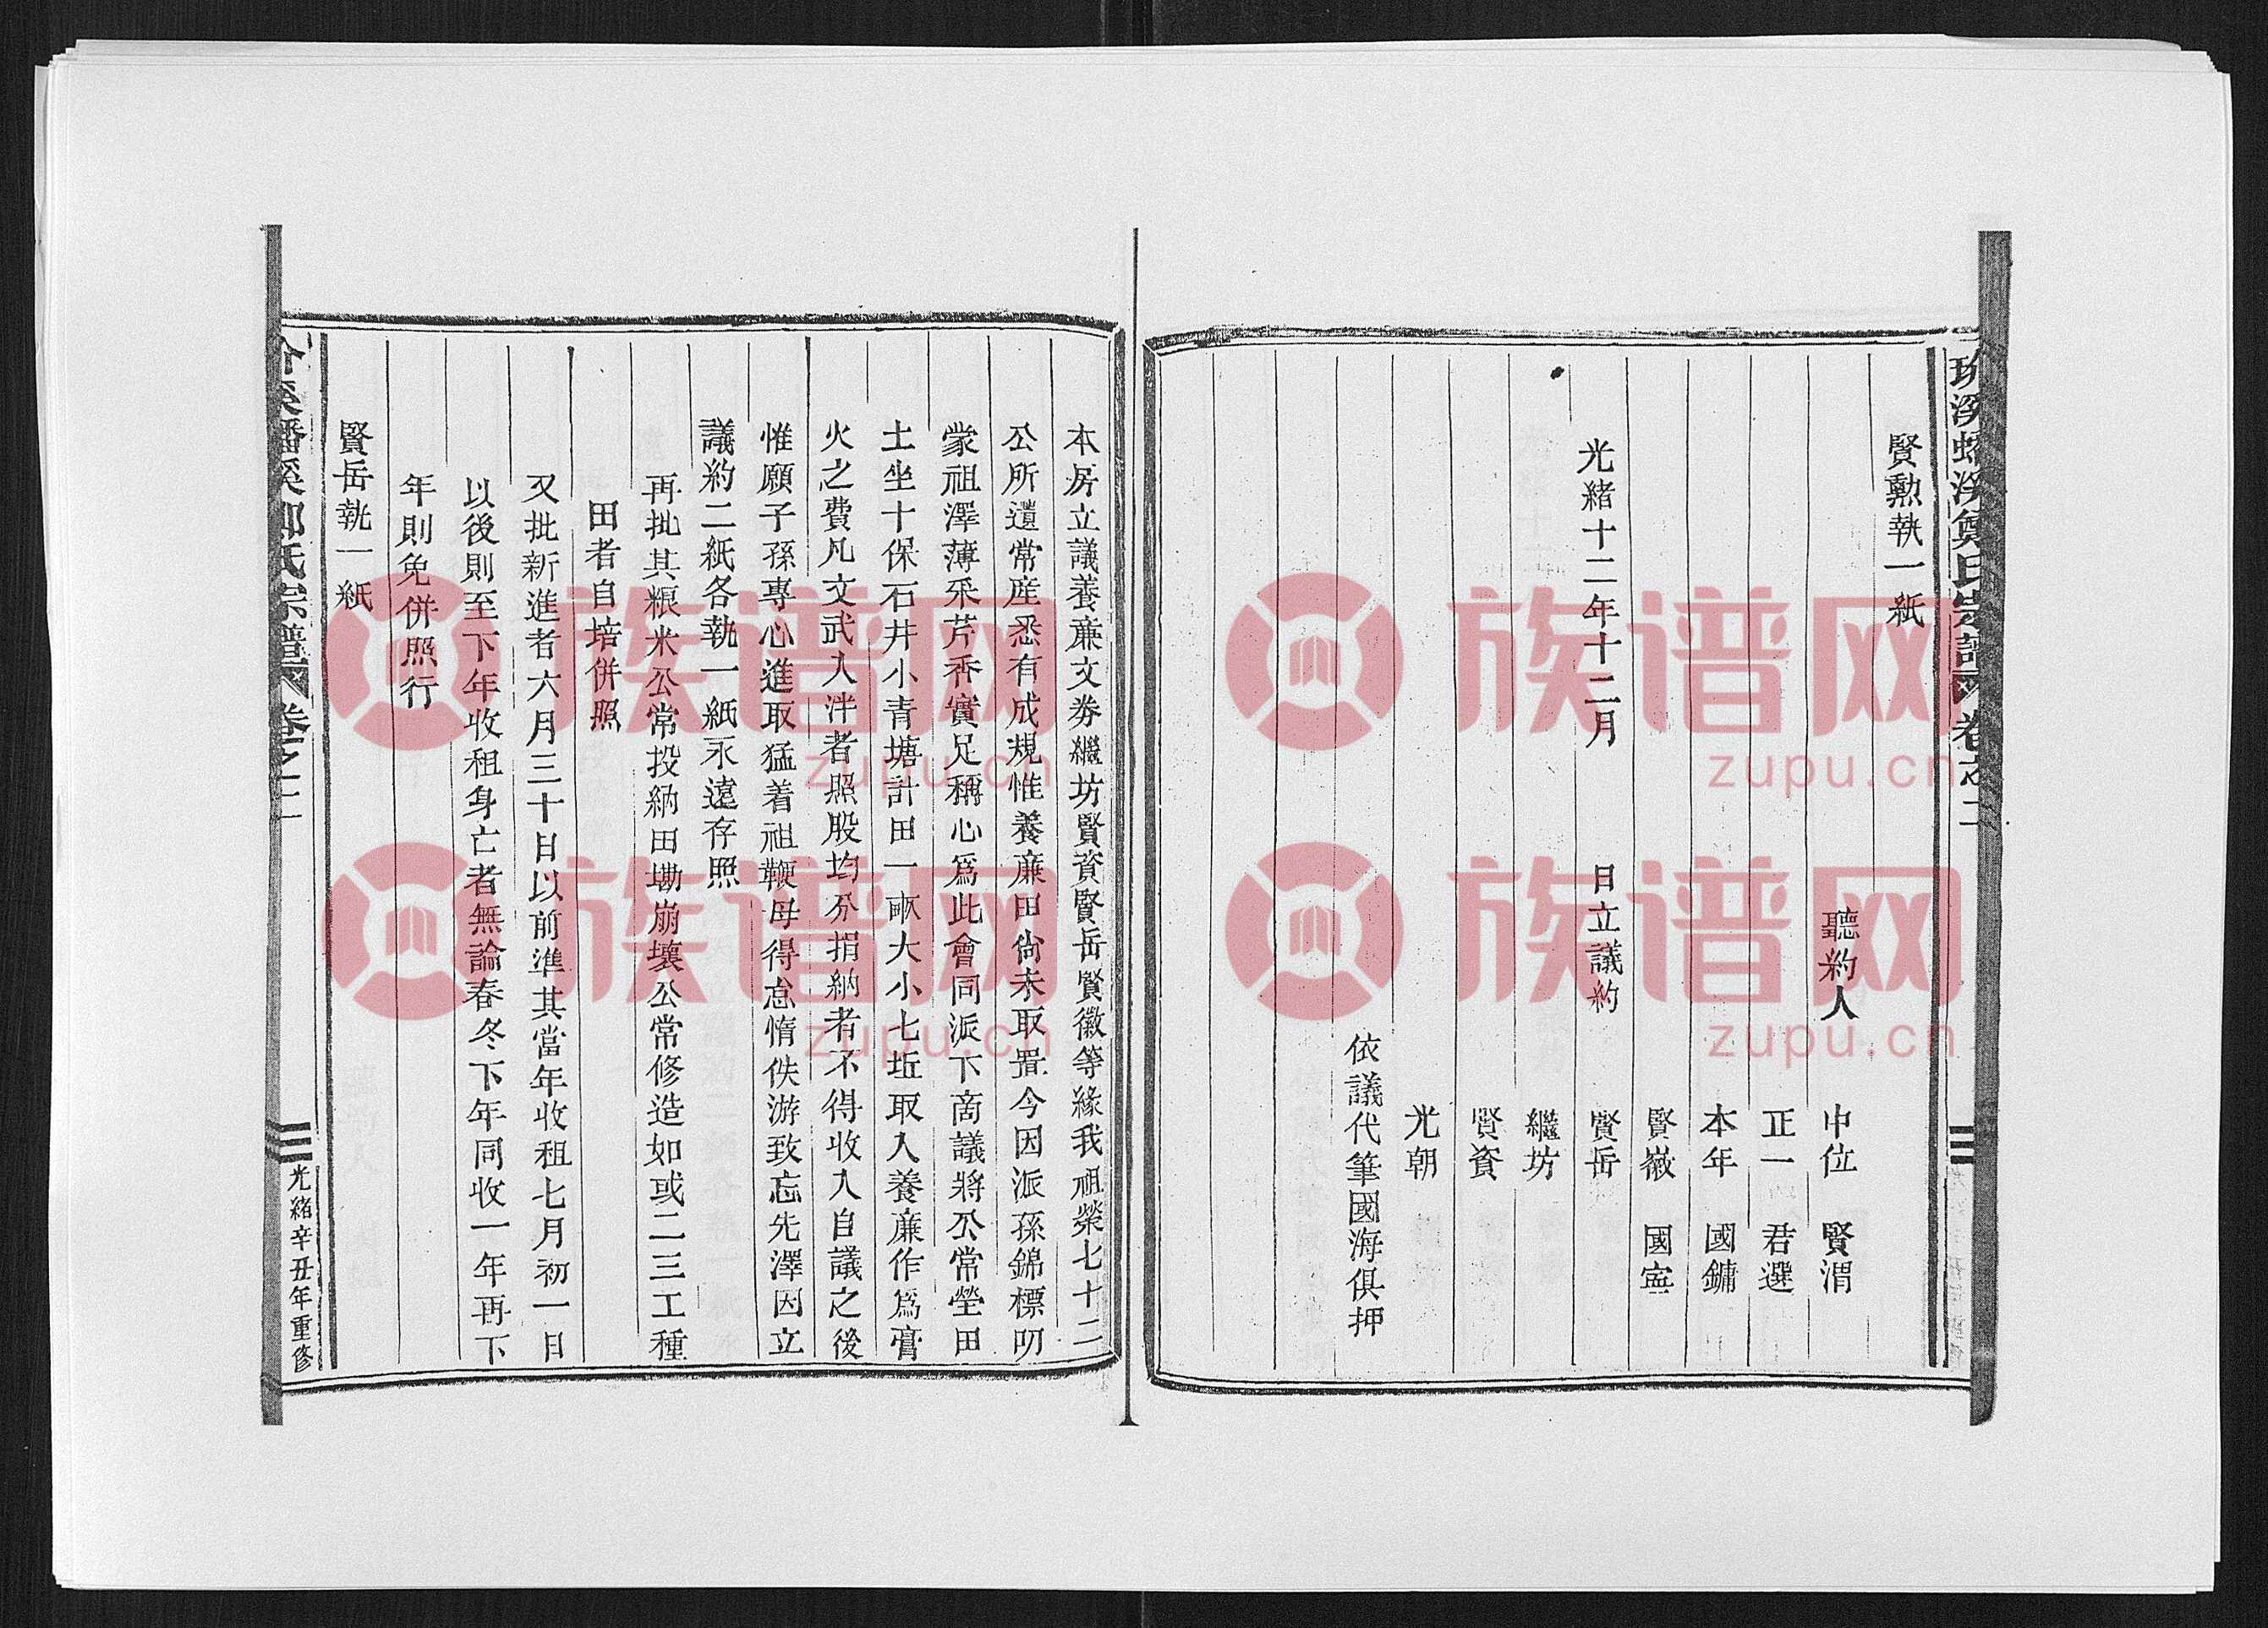 賢勲執一紙
聽約人
中位　賢渭
正一　君選
本年　國鏞
賢嶶　國寍
光緒十二年十二月　日立議約　賢岳
繼坊
賢資
光朝
依議代筆國海俱押
本房立議養廉文券繼坊賢資賢岳賢徽等緣我祖榮七十二
公所遺常産悉有成規惟養廉田尚未取置今因派孫錦標叨
蒙祖澤薄采芹香實足稱心爲此會同派下商議將公常塋田
土坐十保石井小青塘計田一畝大小七坵取入養廉作爲膏
火之費凡文武入泮者照股均分捐納者不得收入自議之後
惟願子孫專心進取猛着祖鞭毋得怠惰佚游致忘先澤因立
議約二紙各執一紙永遠存照
再批其粮米公常投納田塝崩壞公常修造如或二三工種
田者自培併照
又批新進者六月三十日以前準其當年收租七月初一日
以後則至下年收租身亡者無論春冬下年同收一年再下
年則免併照行
賢岳執一紙
氏宗譜 卷之二
光緒辛丑年重修
族谱网
zupu.cn
族谱网
zupu.cn
族谱网
zupu.cn
族谱网
zupu.cn